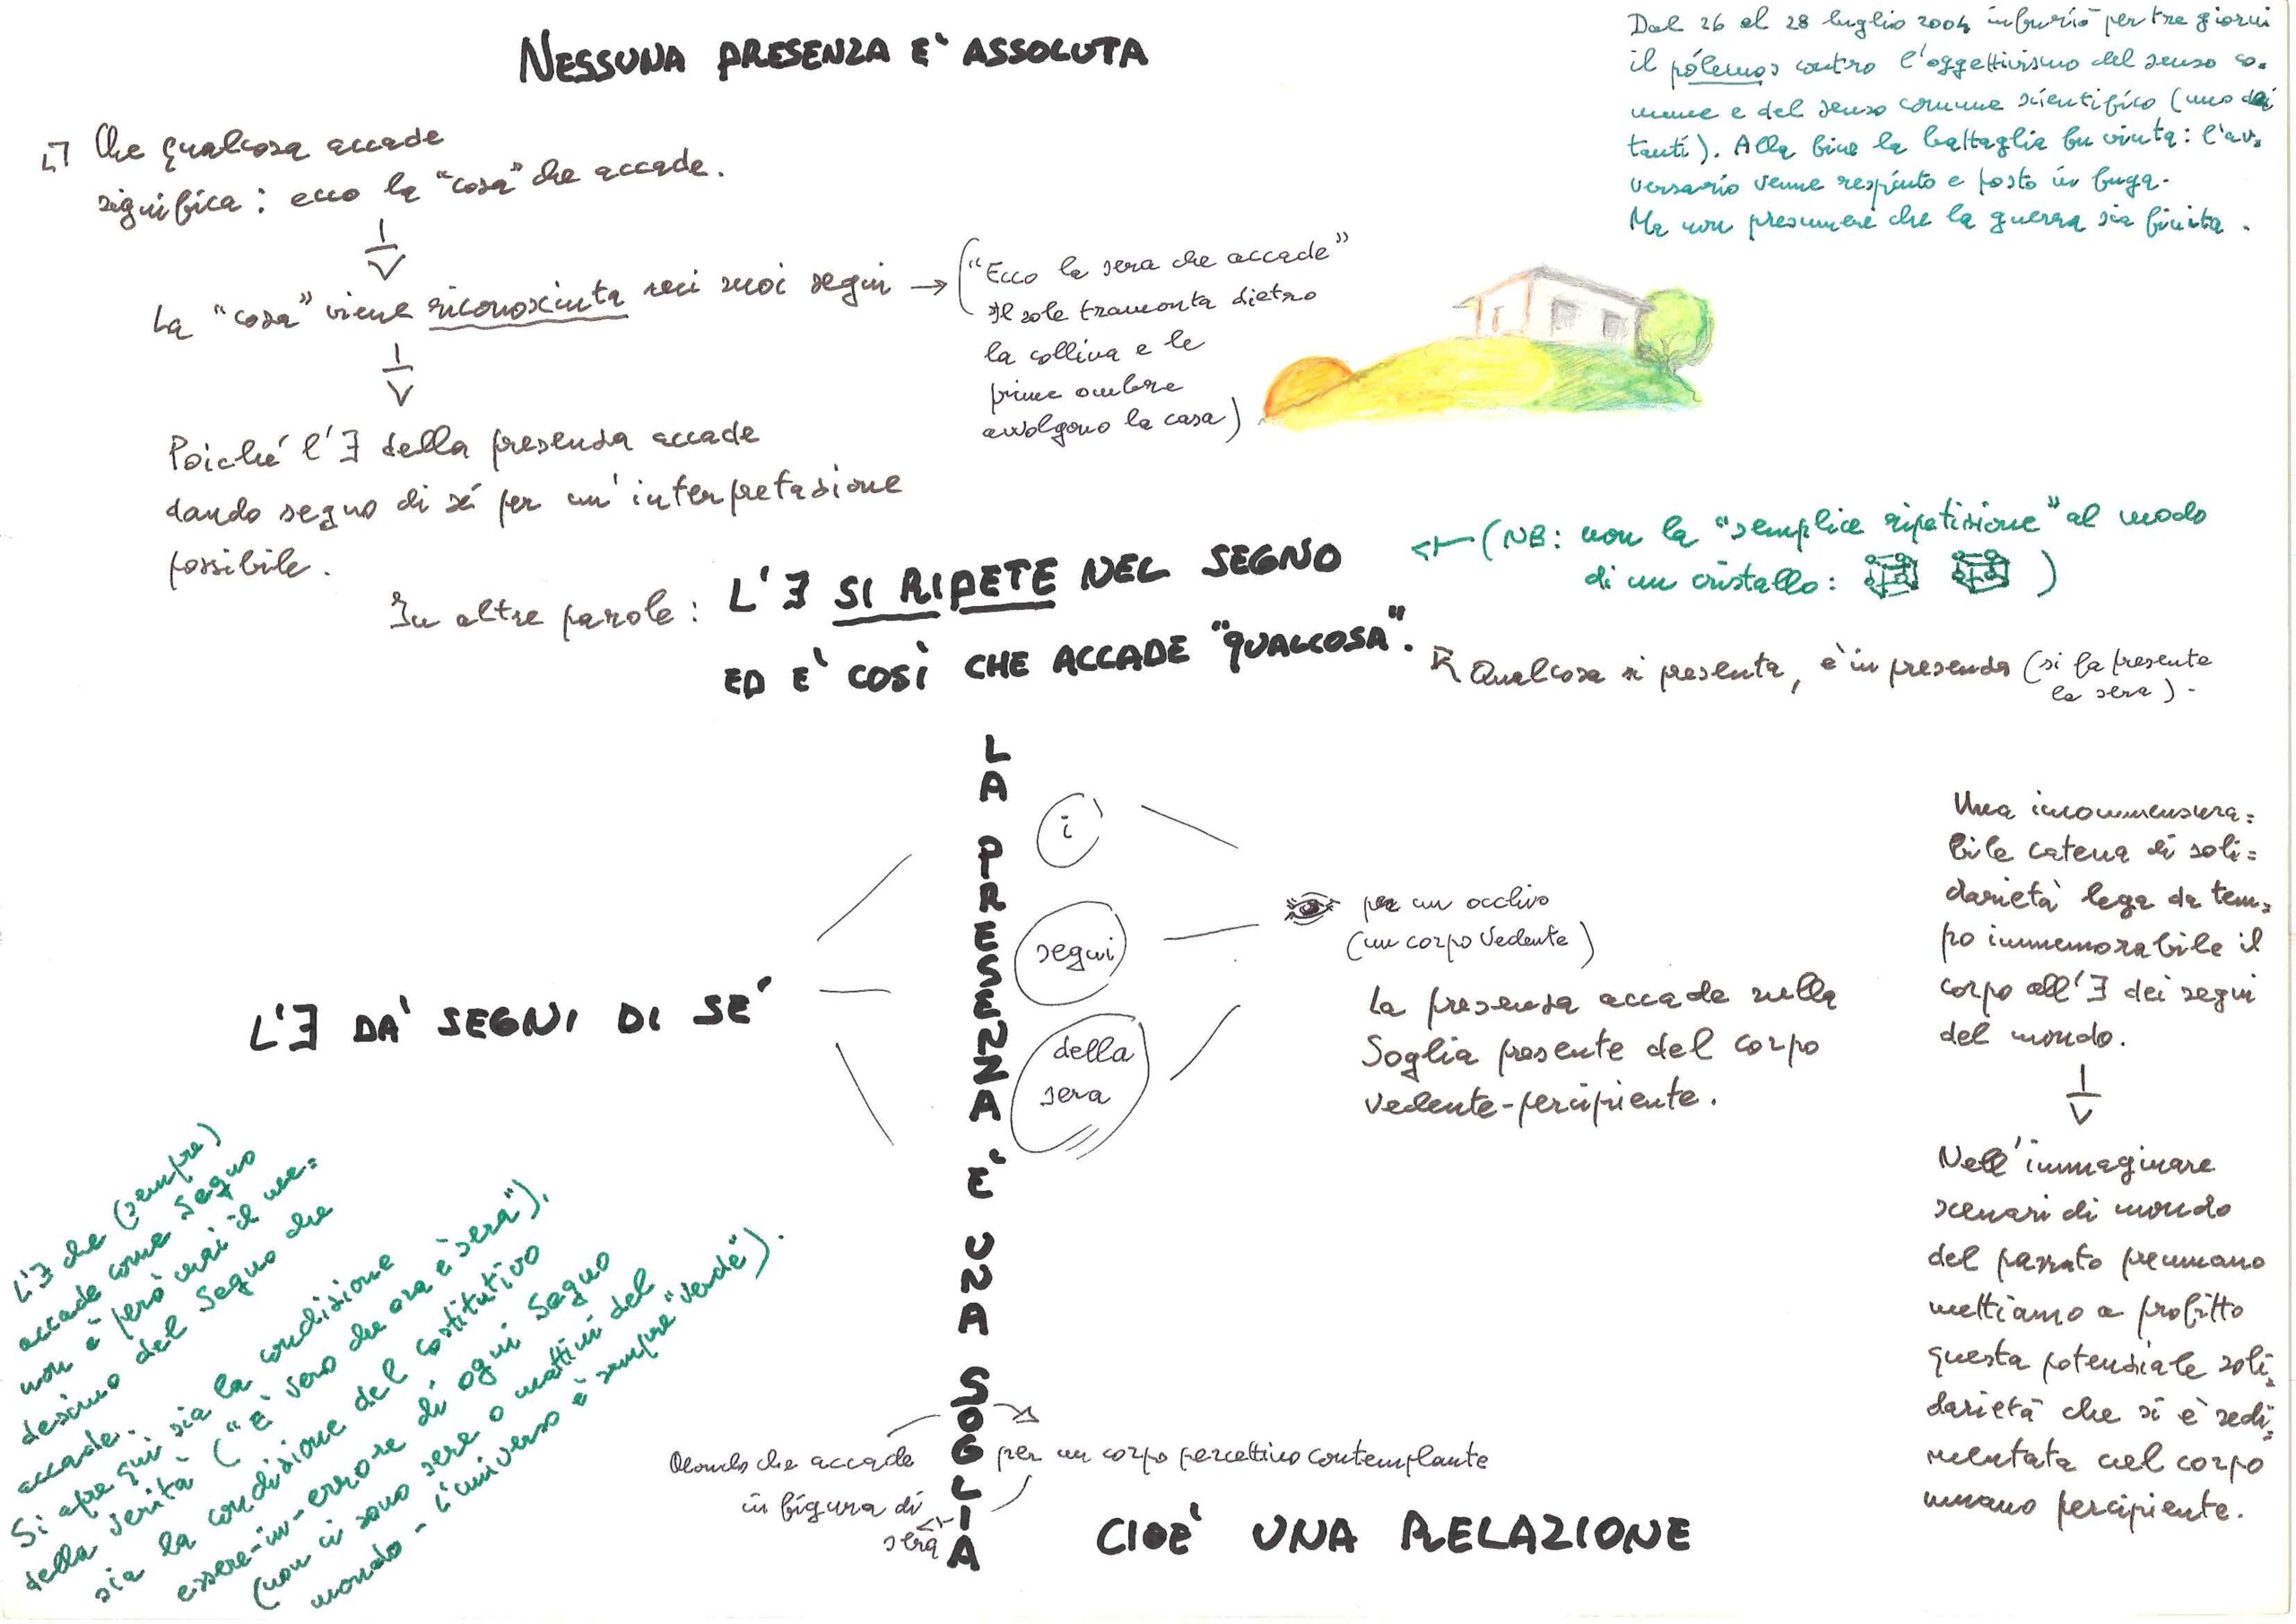 NESSUNA PRESENZA E' ASSOLUTA
Dal 26 al 28 luglio 2004 infuriò per tre giorni
il pólemos contro l'oggettivismo del senso co-
mune e del senso comune scientifico (uno dei
tanti). Alla fine la battaglia fu vinta: l'av-
versario venne respinto e posto in fuga.
Ma non presumere che la guerra sia finita.
Che qualcosa accade
significa: ecco la "cosa" che accade.
La "cosa" viene riconosciuta nei suoi segni →
("Ecco la sera che accade"
Il sole tramonta dietro
la collina e le
prime ombre
avvolgono la casa)
Poiché l'∃ della presenza accade
dando segno di sé per un'interpretazione
possibile.
In altre parole: L'∃ SI RIPETE NEL SEGNO
ED E' COSÌ CHE ACCADE "QUALCOSA".
(NB: non la "semplice ripetizione" al modo
di un cristallo: )
Qualcosa si presenta, è in presenza (si fa presente
la sera).
L'∃ DA' SEGNI DI SE'
LA PRESENZA E' UNA SOGLIA
i
segni
della
sera
per un occhio
(un corpo vedente)
La presenza accade sulla
Soglia presente del corpo
vedente-percipiente.
Una incommensura=
bile catena di soli=
darietà lega da tem=
po immemorabile il
corpo all'∃ dei segni
del mondo.
Nell'immaginare
scenari di mondo
del passato preumano
mettiamo a profitto
questa potenziale soli=
darietà che si è sedi=
mentata nel corpo
umano percipiente.
L'∃ che (sempre)
accade come Segno
non è però mai il me=
desimo del Segno che
accade.
Si apre qui sia la condizione
della verità ("è vero che ora è sera"),
sia la condizione del costitutivo
essere-in-errore di ogni Segno
(non ci sono sere o mattini del
mondo - l'universo è sempre "verde").
Mondo che accade
in figura di
sera
per un corpo percettivo contemplante
CIOE' UNA RELAZIONE